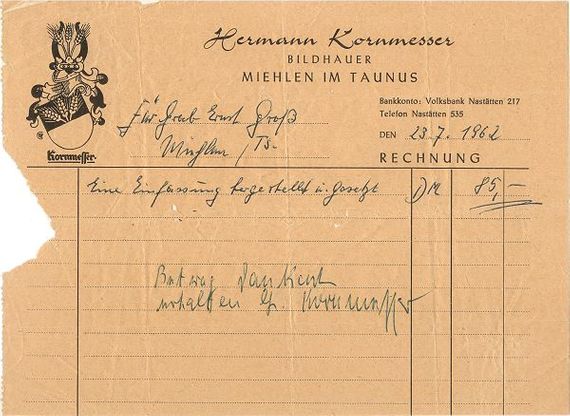 Hermann Kornmesser
BILDHAUER
MIEHLEN IM TAUNUS
Kornmesser.
Bankkonto: Volksbank Nastätten 217
Telefon Nastätten 535
Für Grab Ernst Groß
Miehlen / Ts.
DEN 23.7.1962
RECHNUNG
Eine Einfassung hergestellt u. gesetzt DM 85,-
Betrag dankend
erhalten H. Kornmesser